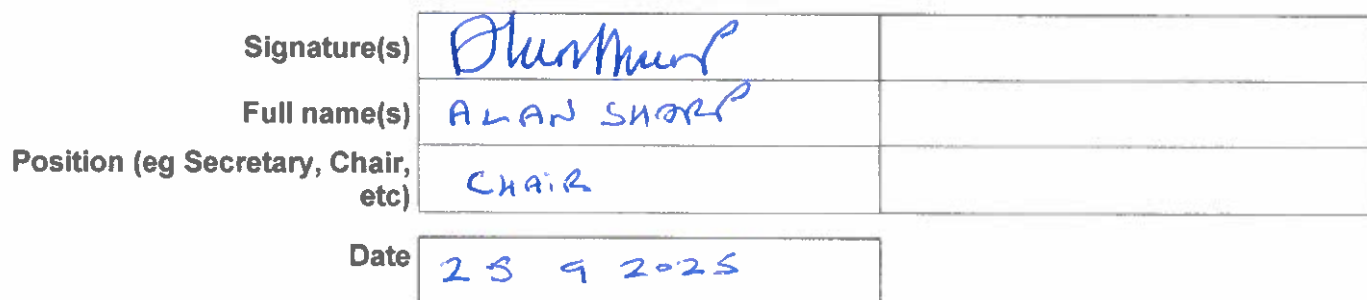 Signature(s)
Full name(s) ALAN SHARP
Position (eg Secretary, Chair, etc) CHAIR
Date 25 9 2025